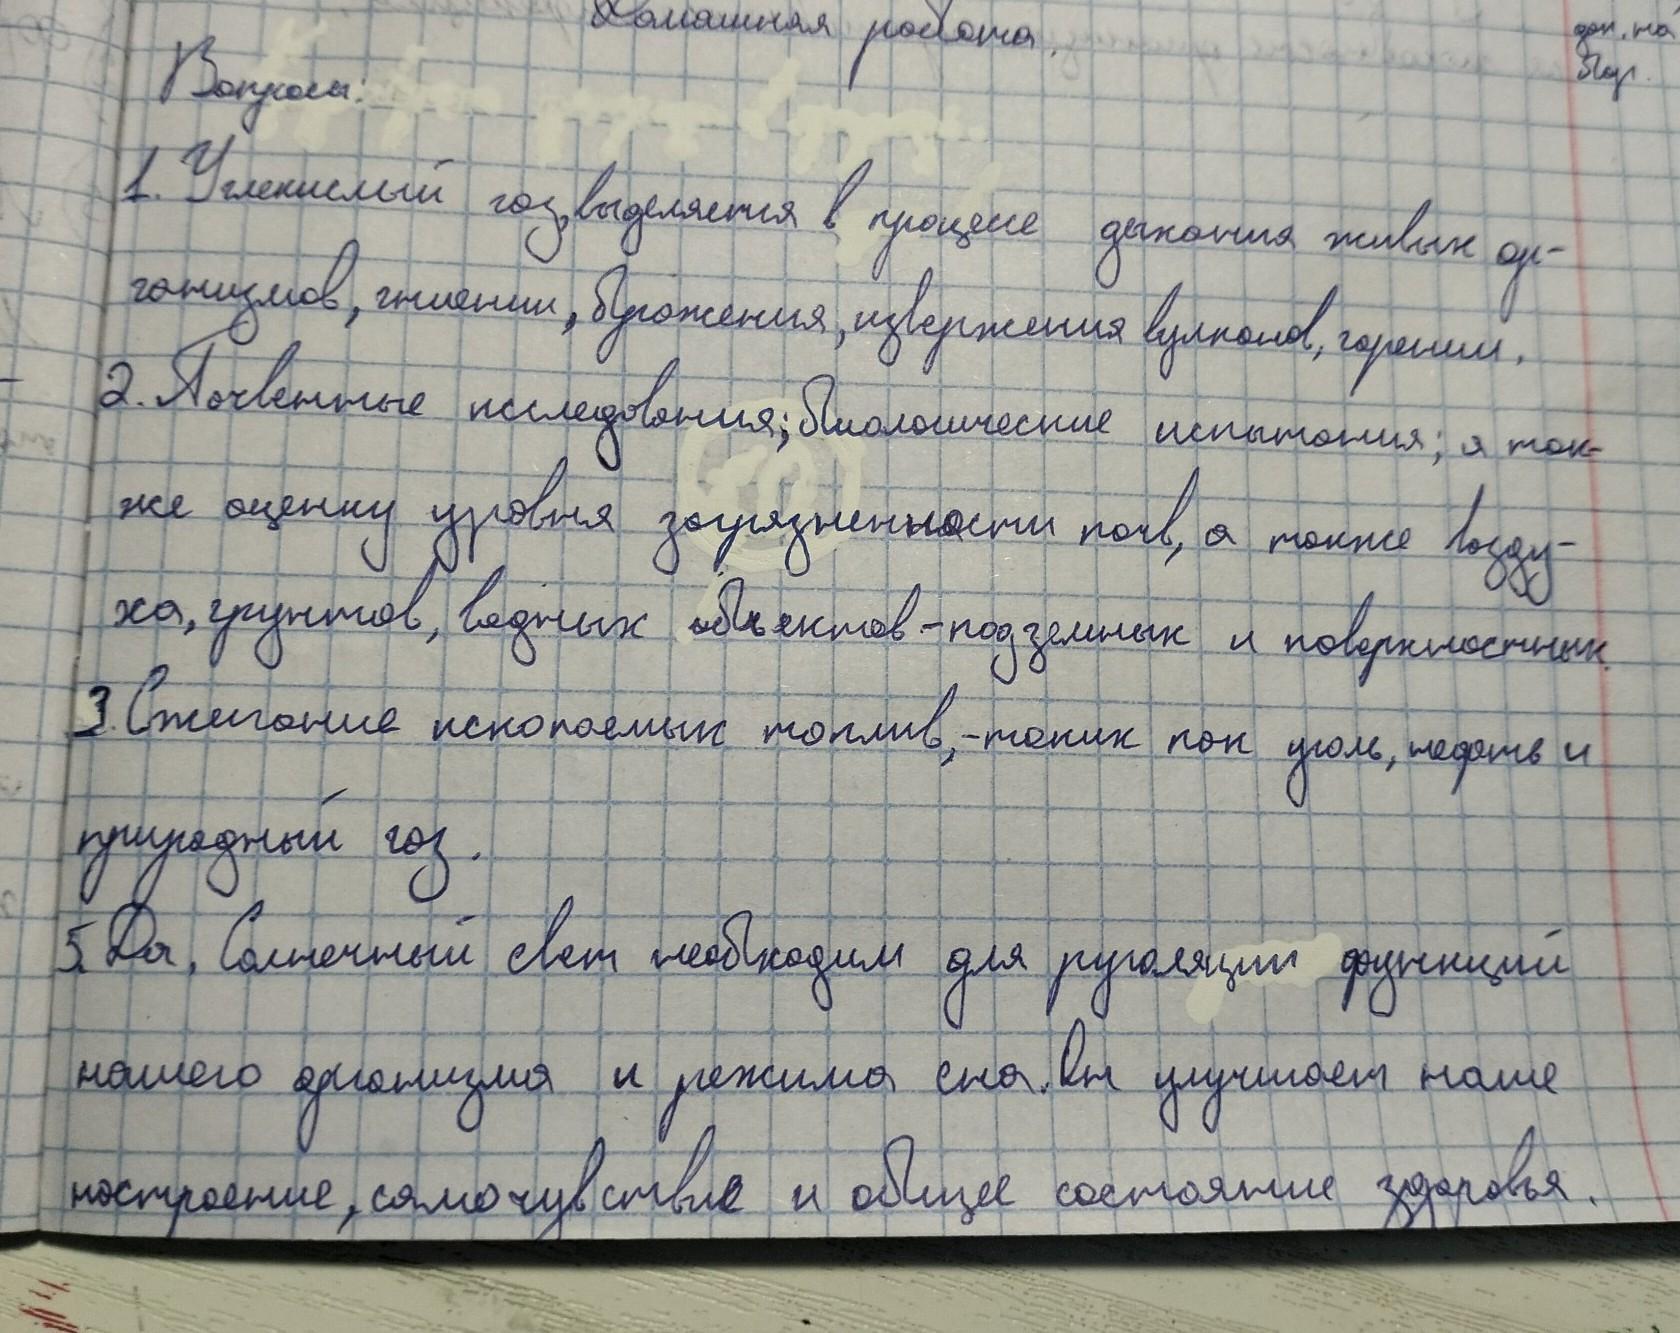 Домашняя работа.
доп. на
Вопросы:
1. Углекислый газ, выделяется в процессе дыхания живых ор-
ганизмов, гниении, брожения, извержения вулканов, горении.
2. Почвенные исследования; биологические испытания; а так-
же оценку уровня загрязненности почв, а также возду-
ха, грунтов, водных объектов - подземных и поверхностных.
3. Сжигание ископаемых топлив, - таких как уголь, нефть и
природный газ.
5. Да. Солнечный свет необходим для руголяции функций
нашего организма и режима сна. Он улучшает наше
настроение, самочувствие и общее состояние здоровья.